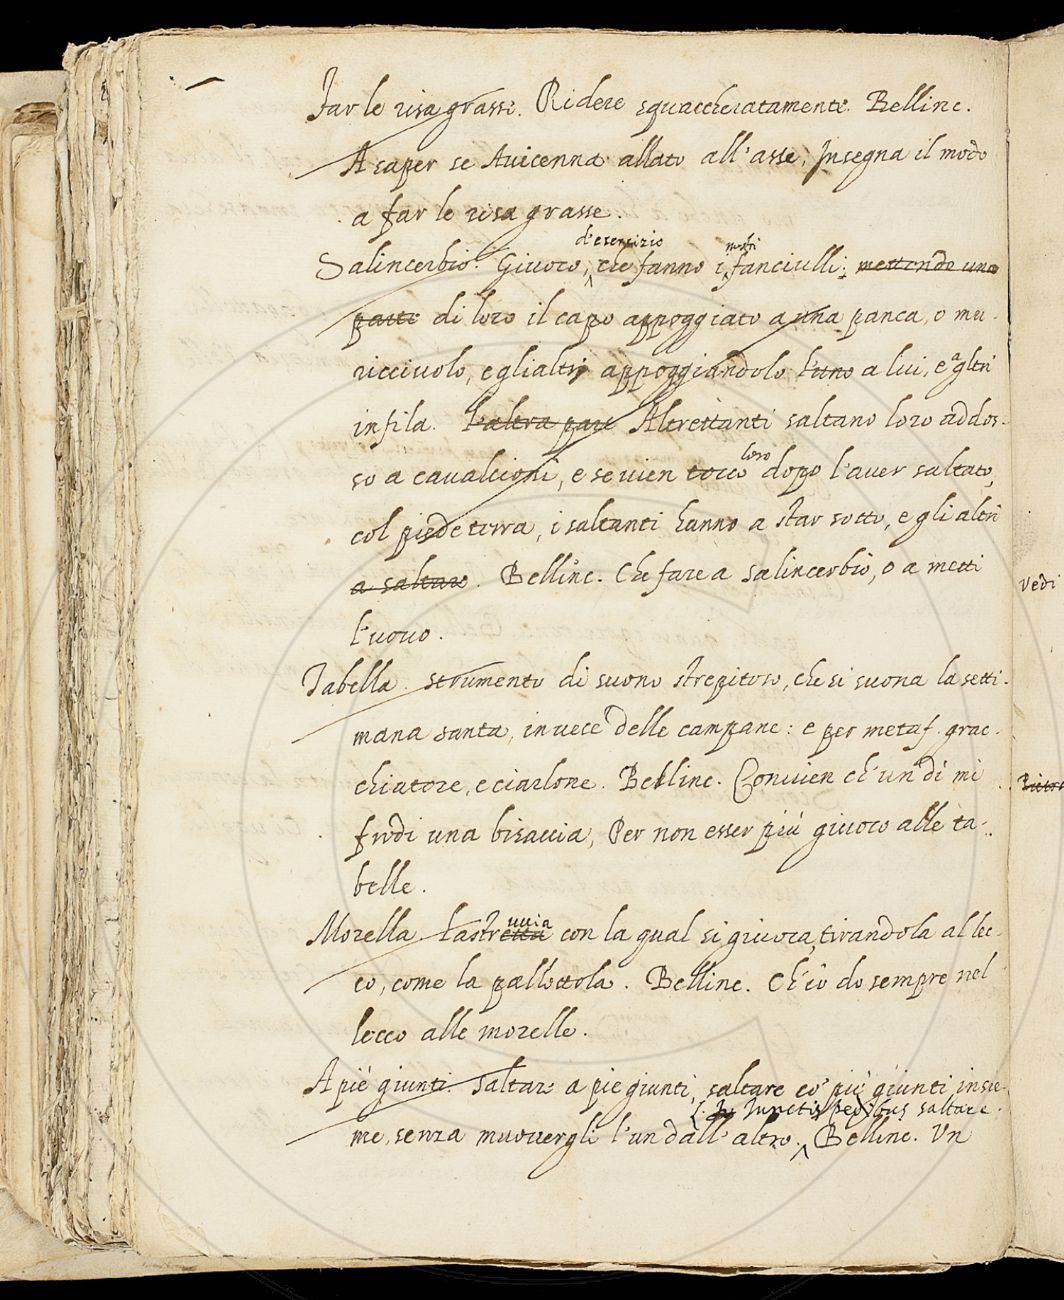 Far le risa grasse. Ridere sguaccheratamente. Bellinc.
A saper se Auicenna allato all'asse, Insegna il modo
a far le risa grasse.
d'esercizio molti
Salincerbio. Giuoco, che fanno i fanciulli; mettendo una
parte di loro il capo appoggiato a una panca, o mu-
ricciuolo, e gli altri appoggiandolo l'uno a lui, e a gl'altri
in fila. L'altra parte Altrettanti saltano loro addos-
loro
so a cavalcioni, e se vien tocco dopo l'aver saltato,
col piede terra, i saltanti hanno a star sotto, e gli altri
a saltare. Bellinc. Che fare a salincerbio, o a metti
l'uovo.
Tabella. Strumento di suono strepitoso, che si suona la setti-
mana santa, in uece delle campane: e per metaf. grac-
chiatore, e ciarlone. Bellinc. Conuien ch'un dì mi
frodi una bisaccia, Per non esser più giuoco alle ta-
belle.
uccia
Morella Lastretta con la qual si giuoca, tirandola al lec-
co, come la pallottola. Bellinc. Ch'io do sempre nel
lecco alle morelle.
A piè giunti saltare a pie giunti, saltare co' piè giunti insie-
Junctis pedibus saltare.
me, senza muouergli l'un dall'altro. Bellinc. Un
Vedi